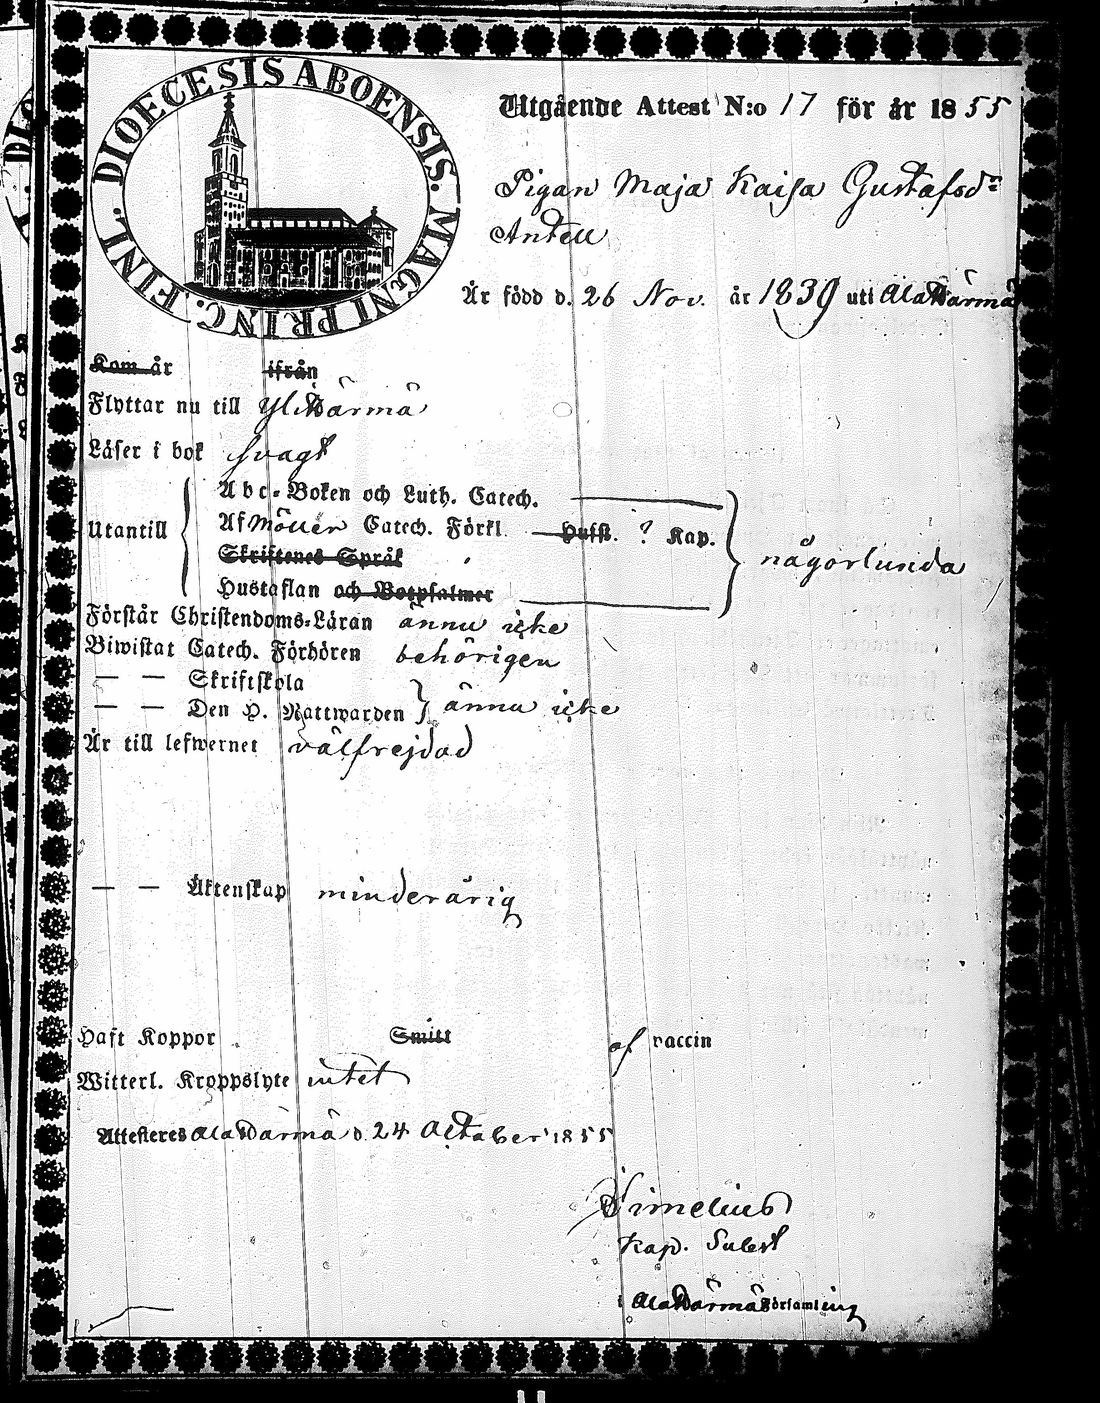 DIOECESIS ABOENSIS. MAGNI PRINC. FINL.
Utgående Attest N:o 17 för år 1855
Pigan Maja Kaisa Gustafsdr
Antell
Är född d. 26 Nov. år 1839 uti Alahärmä
Kom år ifrån
Flyttar nu till Ylihärmä
Läser i bok svagt
Utantill
Abc-Boken och Luth. Catech.
Af Möller Catech. Förkl. Husst. ? Kap.
någorlunda
Skriftenes Språk
Hustaflan och Botpsalmer
Förstår Christendoms-Läran ännu icke
Biwistat Catech. Förhören behörigen
— — Skriftskola
— — Den H. Nattwarden ännu icke
Är till lefwernet välfrejdad
— — Äktenskap minderårig
Haft Koppor Smitt af vaccin
Witterl. Kroppslyte intet
Attesteras Alahärmä d. 24 October 1855
Simelius
Kap. Subst
i Alahärmä Församling